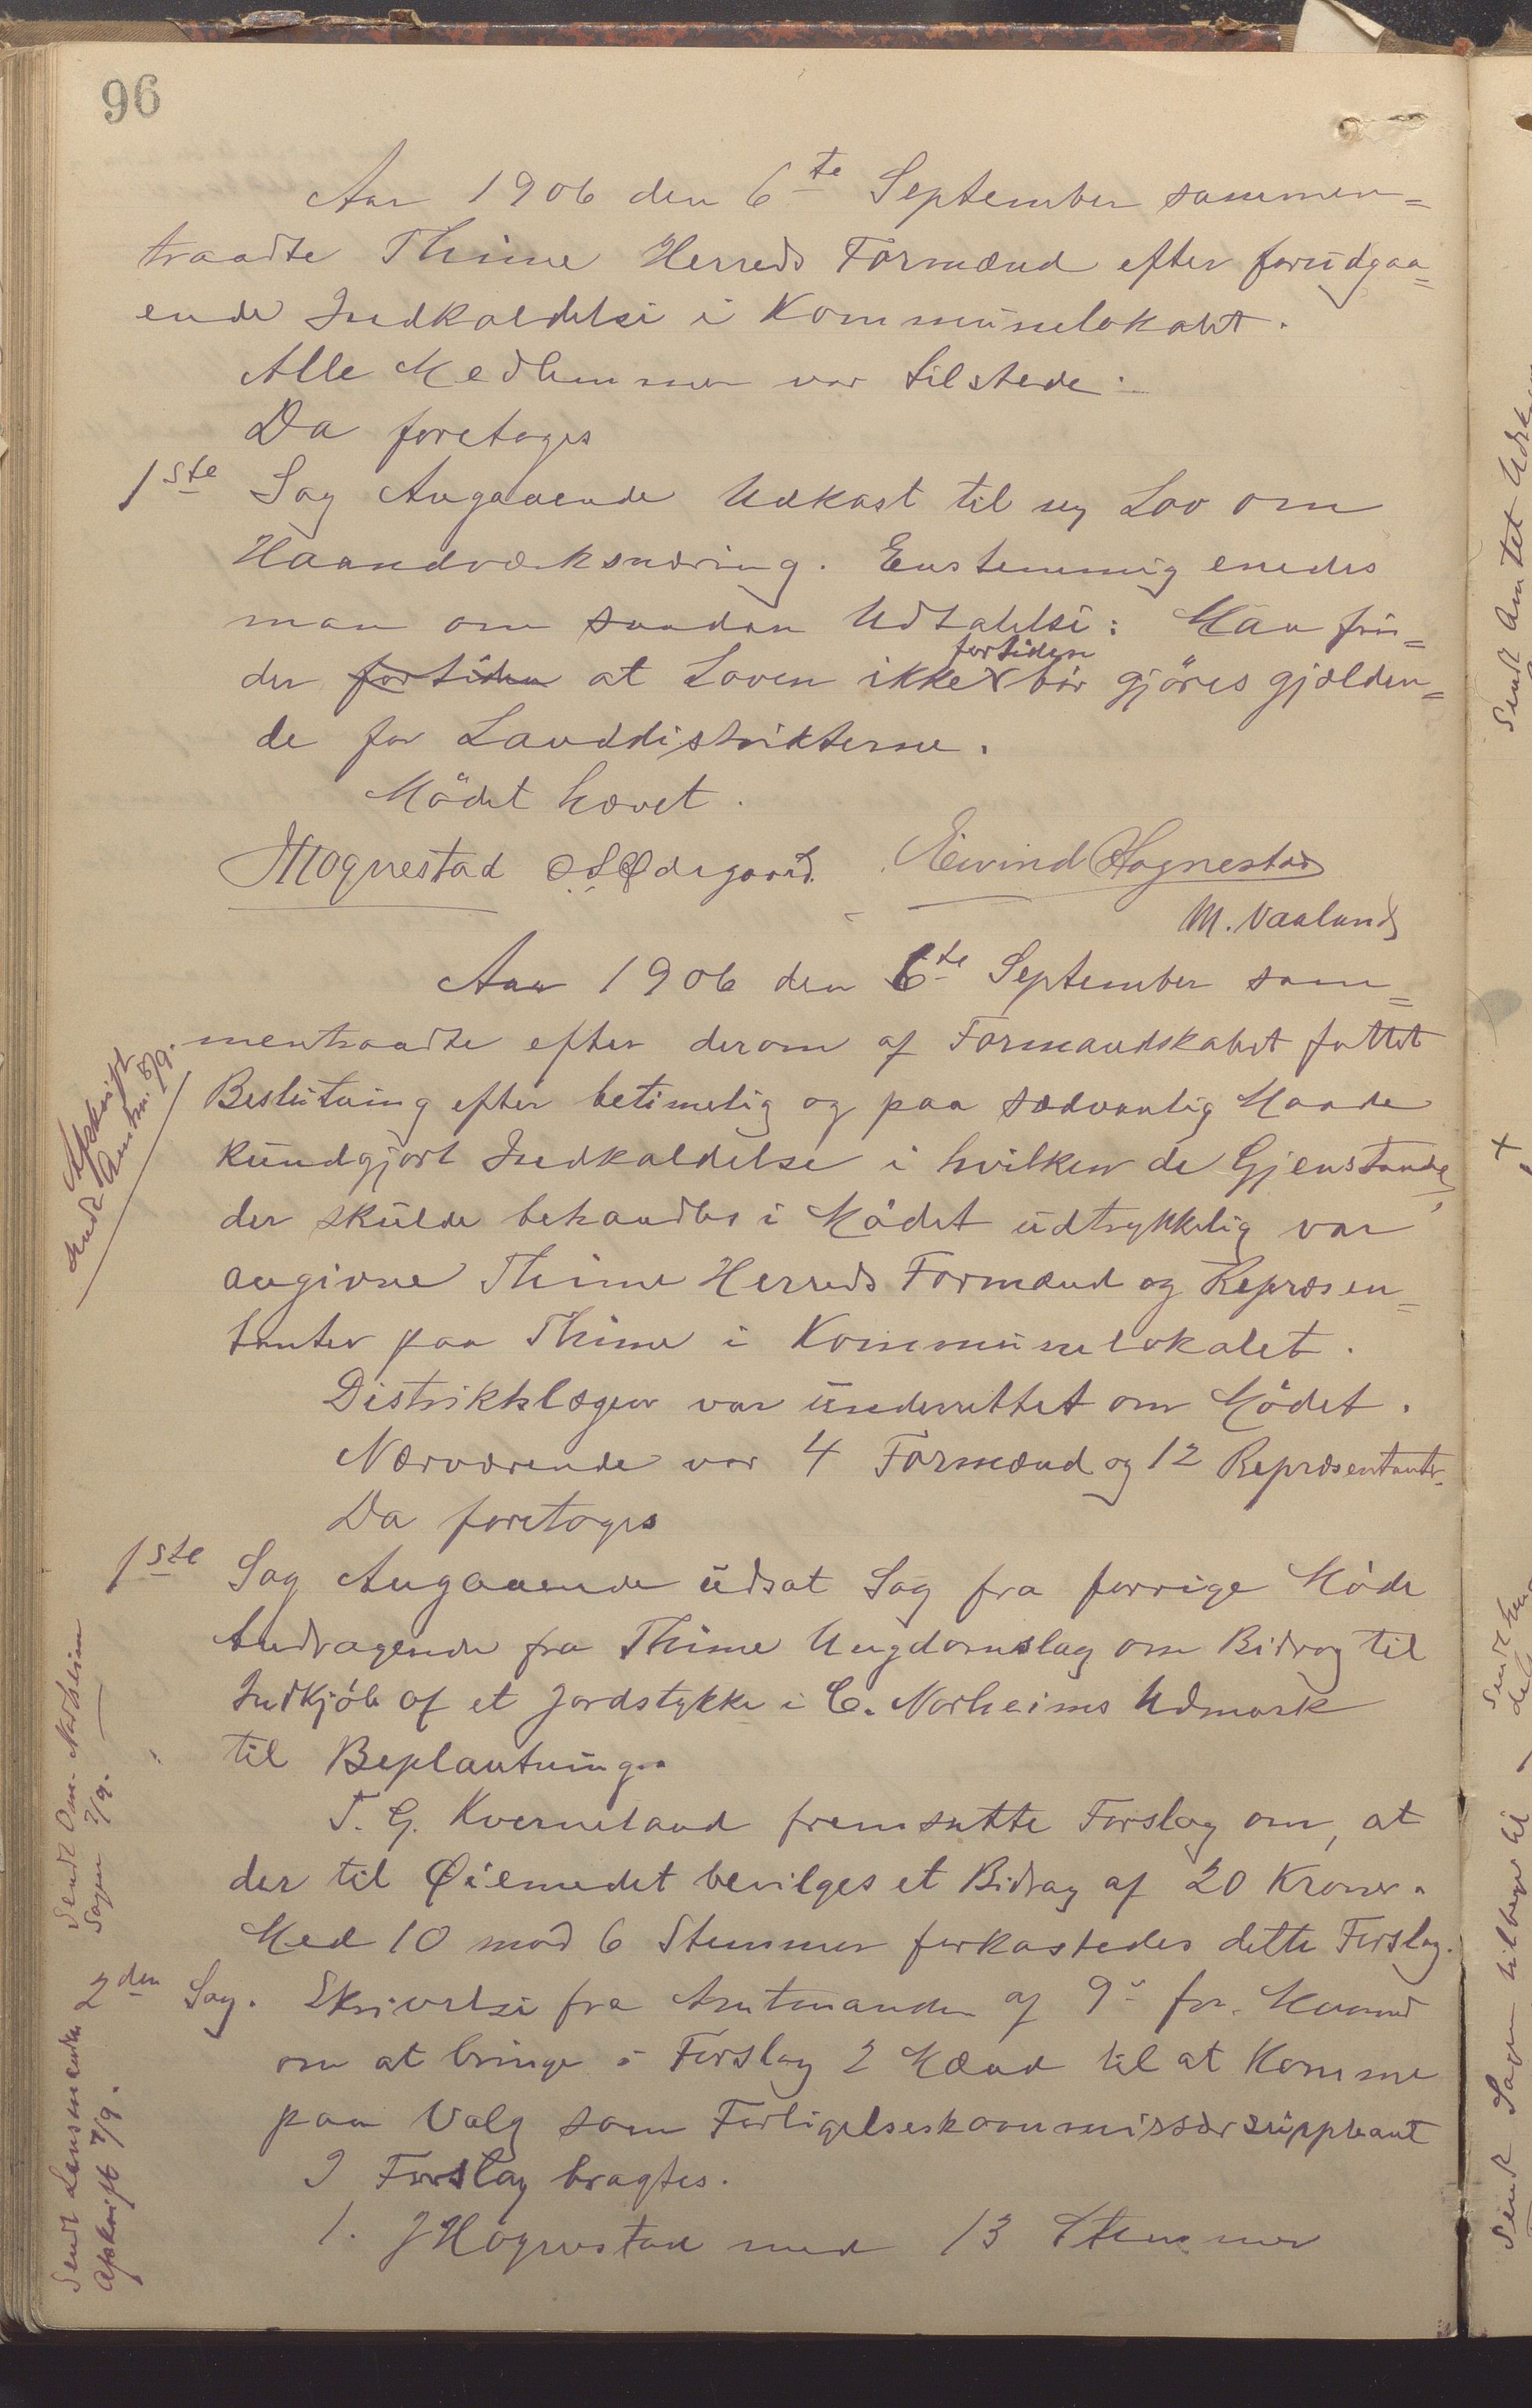 96
Aar 1906 den 6te September sammen=
traadte Thime Herreds Formænd efter forudgaa=
ende Indkaldelse i Kommunelokalet.
Alle Medlemmer var tilstede.
Da foretoges
1ste Sag Angaaende Udkast til ny Lov om
Haandværksnæring. Enstemmig enedes
man om saadan Udtalelse: Man fin=
fortiden
der fortiden at Loven ikke bör gjöres gjælden=
de for Landdistrikterne.
Mödet hævet.
JHognestad OSØdegaard. Eivind Hognestad
M. Vaaland
Aar 1906 den 6te September sam=
mentraadte efter derom af Formandskabet fattet
Beslutning efter betimelig og paa sædvanlig Maade
kundgjort Indkaldelse i hvilken de Gjenstande,
der skulde behandles i Mödet udtrykkelig var
angivne Thime Herreds Formænd og Repræsen=
tanter paa Thime i Kommunelokalet.
Distriktslægen var underrettet om Mödet.
Nærværende var 4 Formænd og 12 Repræsentanter.
Da foretoges
Afskrift
sendt Amtm. 8/9.
1ste Sag Angaaende udsat Sag fra forrige Möde
Andragende fra Thime Ungdomslag om Bidrag til
Indkjöb af et Jordstykke i C. Norheims Udmark
til Beplantning.
T. G. Kverneland fremsatte Forslag om, at
der til Øiemedet bevilges et Bidrag af 20 Kroner.
Med 10 mod 6 Stemmer forkastedes dette Forslag.
Sendt Om. Norheim
Sagen 7/9.
2den Sag. Skrivelse fra Amtmanden af 9de for. Maaned
om at bringe i Forslag 2 Mænd til at komme
paa Valg som Forligelseskommissærsuppleant
I Forslag bragtes.
1. JHognestad med 13 Stemmer
Sendt Lensmanden
Afskrift 7/9.